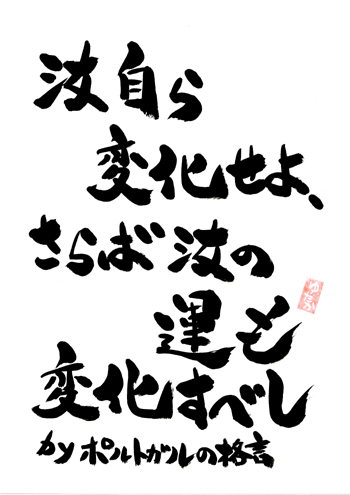 汝自ら
変化せよ、
さらば汝の
運も
変化すべし
カy ポルトガルの格言
ゆたか